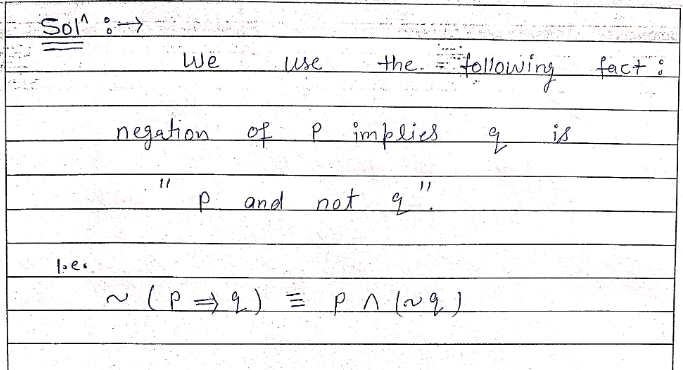 Solⁿ :→
We use the following fact :
negation of p implies q is
" p and not q ".
i.e.
~ (p ⇒ q) ≡ p ∧ (~q)